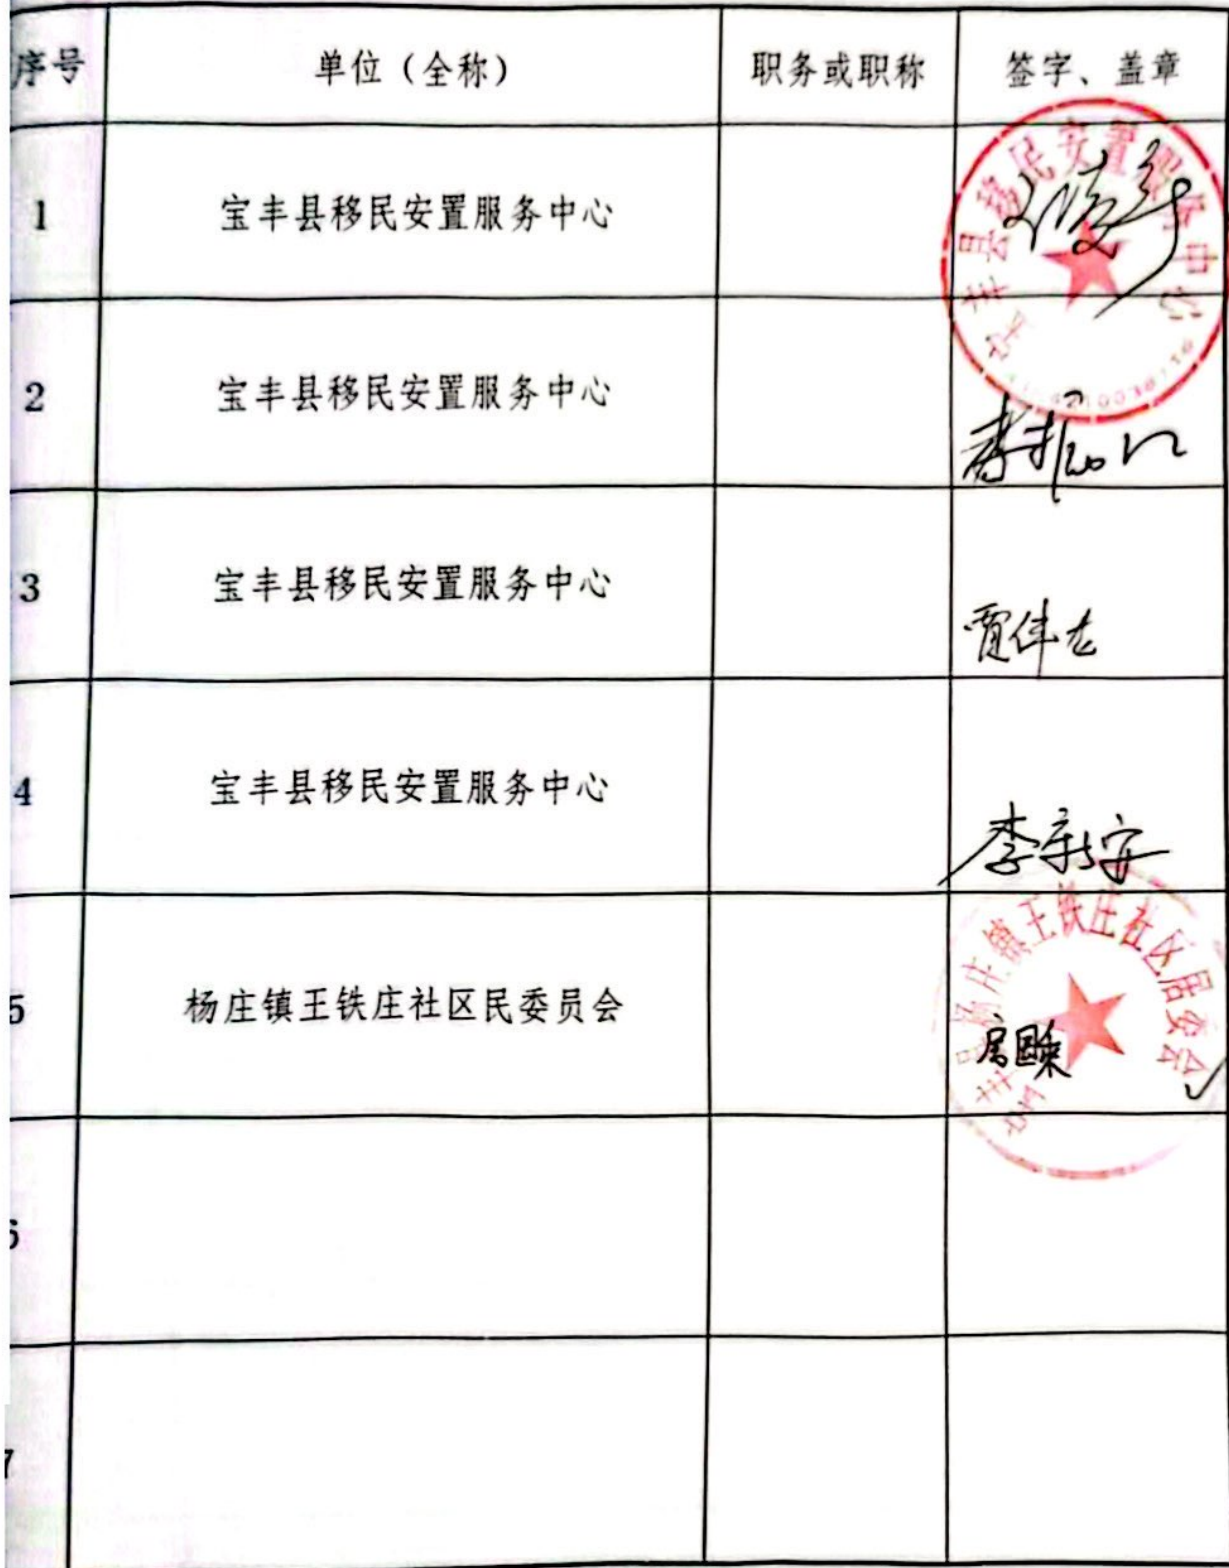 序号 单位（全称） 职务或职称 签字、盖章
1 宝丰县移民安置服务中心
宝丰县移民安置服务中心
2 宝丰县移民安置服务中心
3 宝丰县移民安置服务中心 贾伟
4 宝丰县移民安置服务中心 李新安
5 杨庄镇王铁庄社区民委员会
宝丰县杨庄镇王铁庄社区居委会
6
7